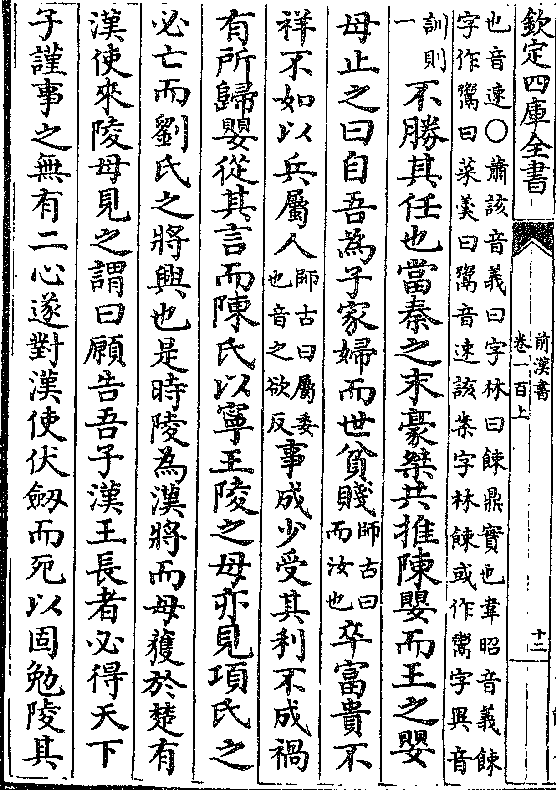 欽定四庫全書
前漢書
卷一百上
十二
也音速〇蕭該音義曰字林曰餗鼎實也韋昭音義餗
字作鬻曰菜羹曰鬻音速該案字林餗或作鬻字異音
訓則
一
不勝其任也當秦之末豪桀共推陳嬰而王之嬰
母止之曰自吾為子家婦而世貧賤師古曰而汝也卒富貴不
祥不如以兵屬人師古曰屬委也音之欲反事成少受其利不成禍
有所歸嬰從其言而陳氏以寧王陵之母亦見項氏之
必亡而劉氏之將興也是時陵為漢將而母獲於楚有
漢使來陵母見之謂曰願告吾子漢王長者必得天下
子謹事之無有二心遂對漢使伏劒而死以固勉陵其